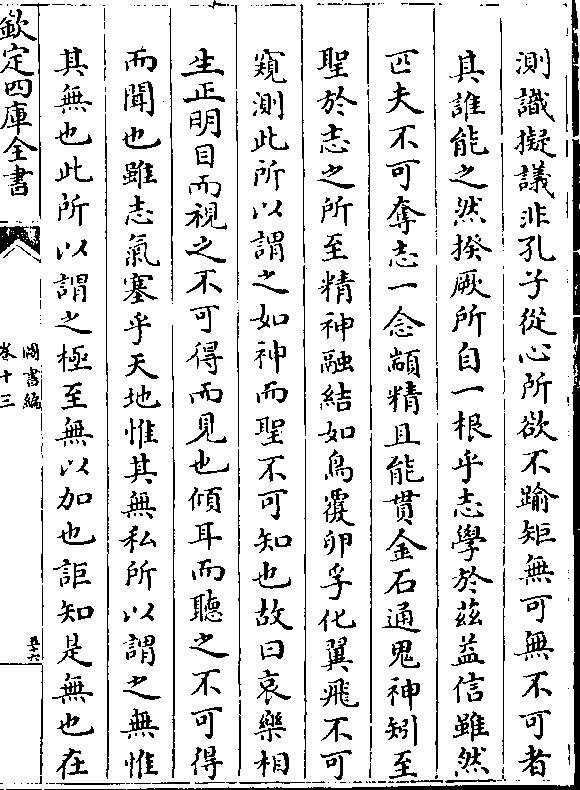 測識擬議非孔子從心所欲不踰矩無可無不可者
其誰能之然揆厥所自一根乎志學於茲益信雖然
匹夫不可奪志一念顓精且能貫金石通鬼神矧至
聖於志之所至精神融結如鳥覆卵孚化翼飛不可
窺測此所以謂之如神而聖不可知也故曰哀樂相
生正明目而視之不可得而見也傾耳而聽之不可得
而聞也雖志氣塞乎天地惟其無私所以謂之無惟
其無也此所以謂之極至無以加也詎知是無也在
欽定四庫全書
圖書編
卷十三
五十六